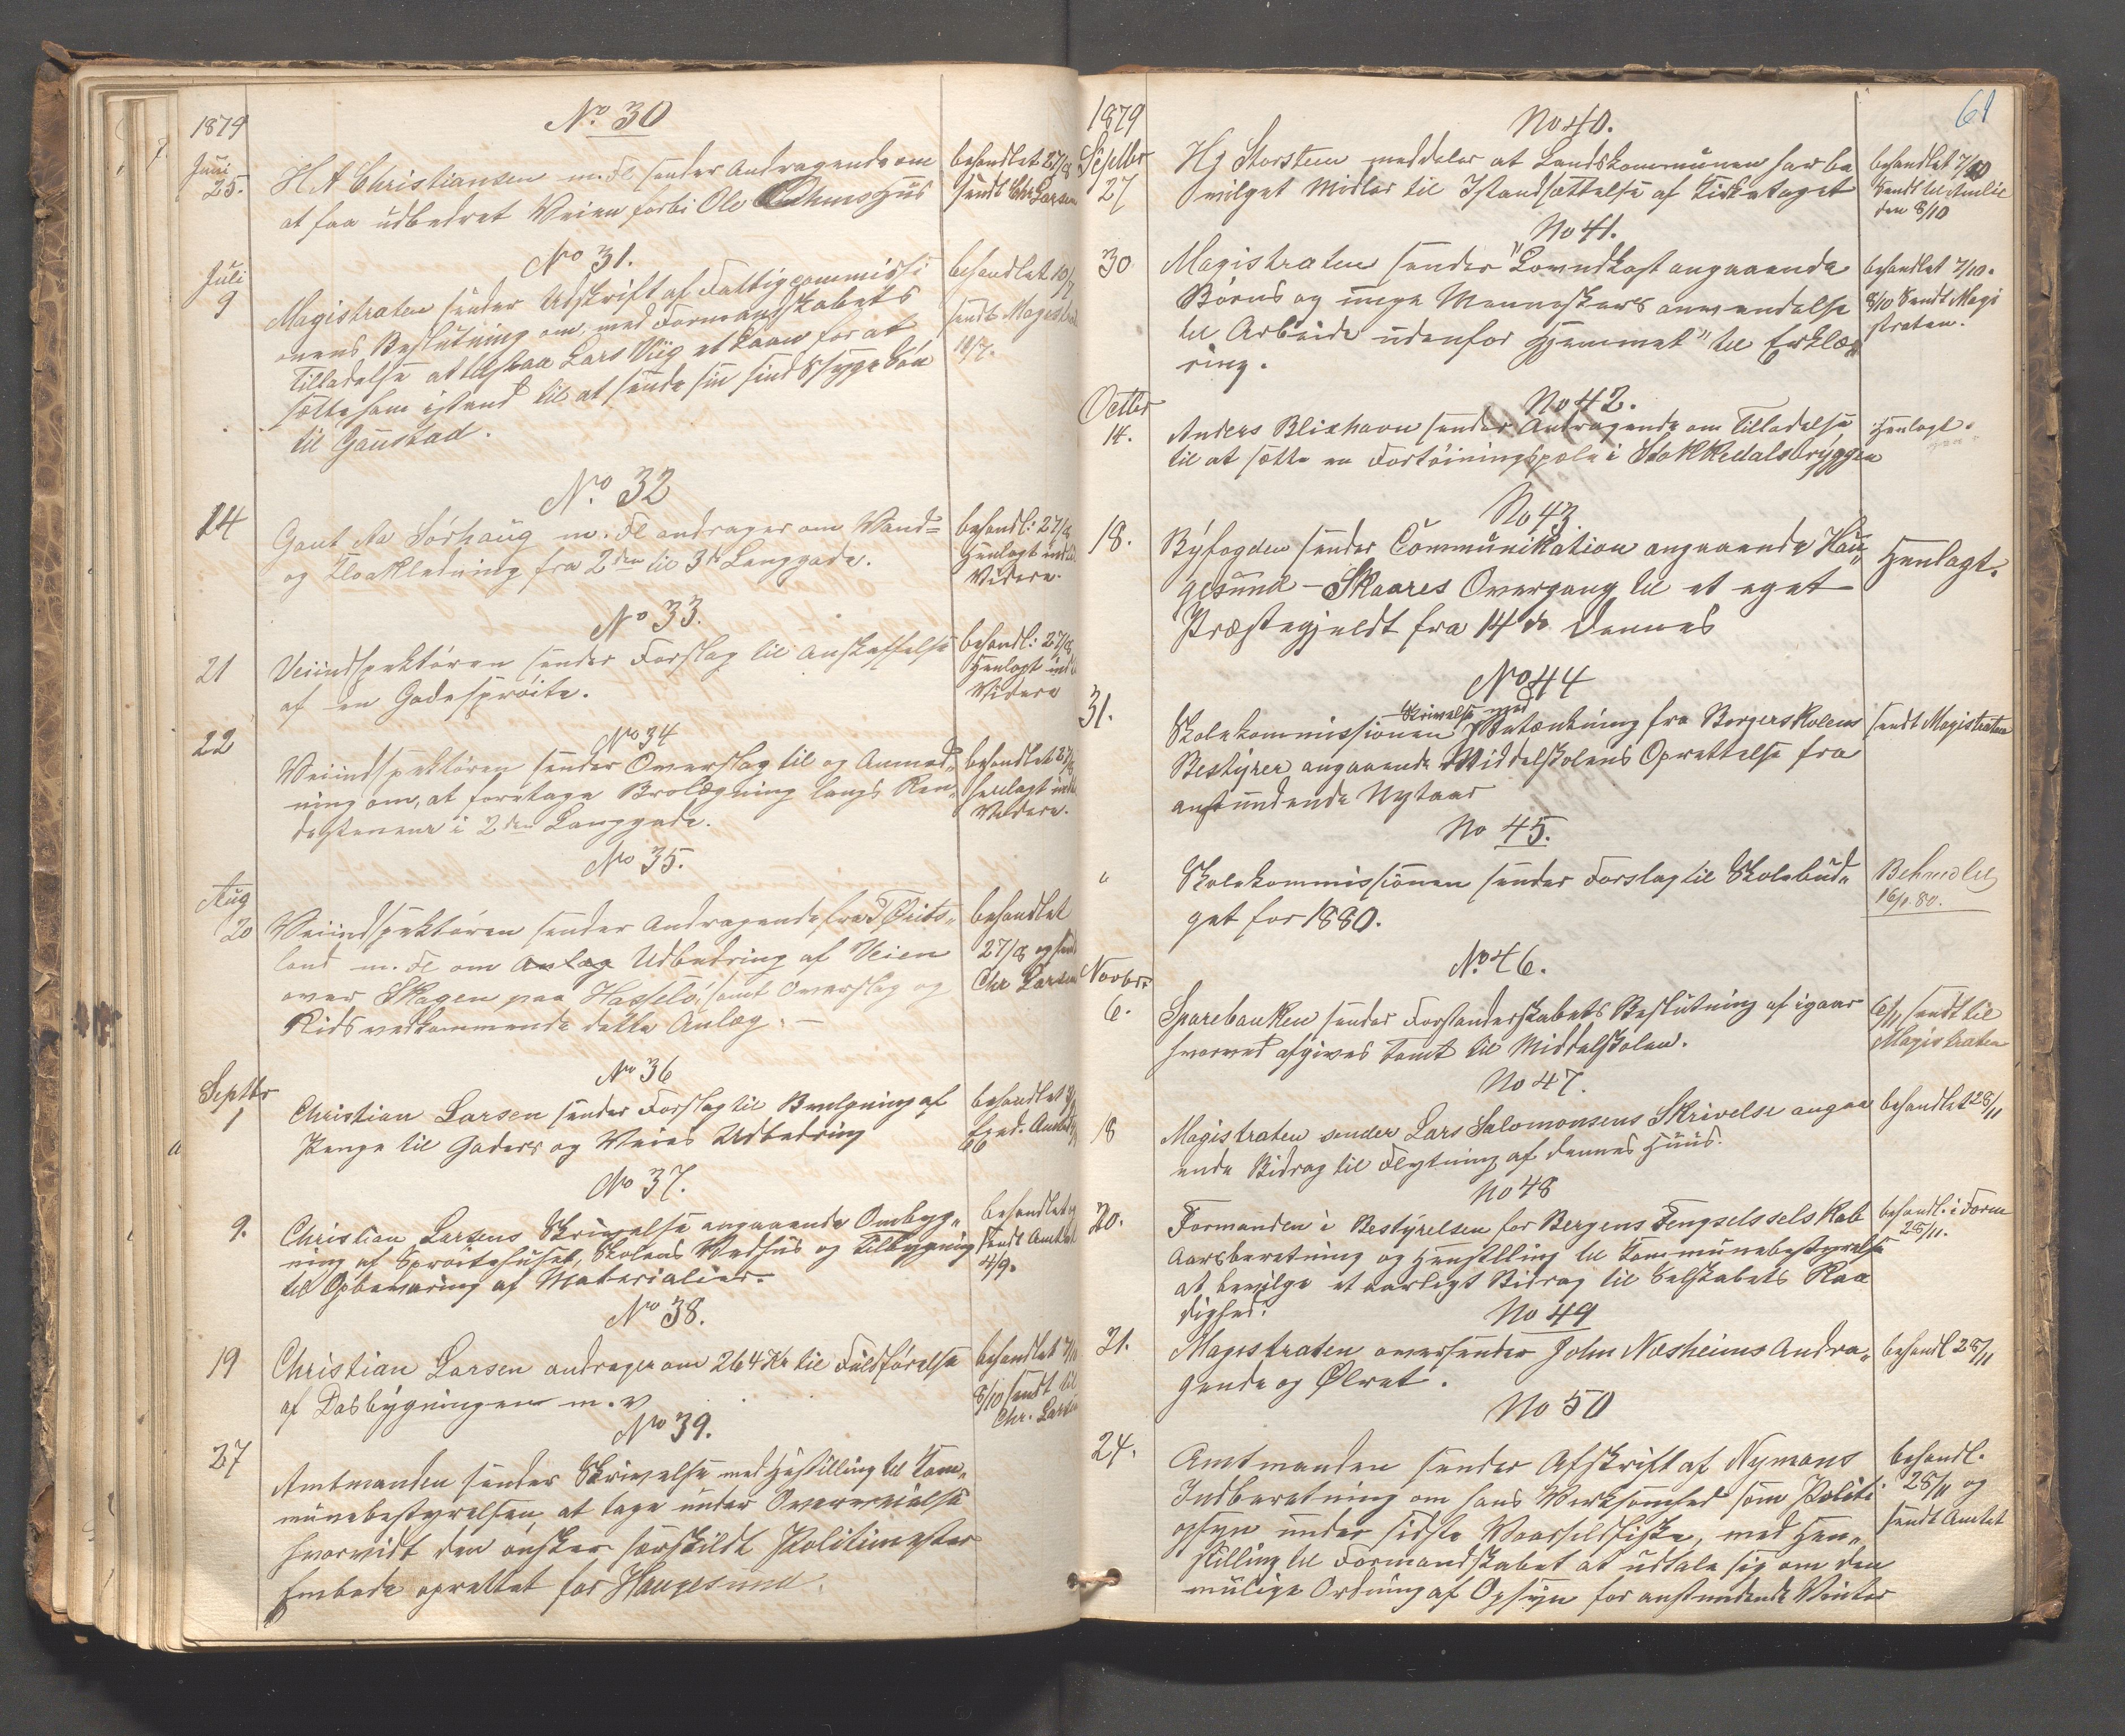 1879
No. 30
Juni
25.
H A Christiansen m. Fl. sender Andragende om
at faa udbedret Veien forbi Ole Huus
behandlet 27/8
sendt Chr Larsen
No 31.
Juli
9
Magistraten sender Udskrift af Fattigcommissi
onens Beslutning om, med Formandskabets
Tilladelse at tilstaa Lars Viig et Laan for at
sætte ham istand til at sende sin sindssyge Søn
til Gaustad.
behandlet 10/7
sendt Magistrat
10/7.
No. 32
14
Gaut Aa Sørhaug m. Fl andrager om Vand=
og Kloakledning fra 2den til 3de Langgade.
behandl: 27/8
Henlagt indtil
Videre.
No 33.
21
Veiindspektøren sender Forslag til Anskaffelse
af en Gadesprøite.
behandl: 27/8
Henlagt ind
Videre
No 34
22
Veiindspektøren sender Overslag til og Anmod„
ning om, at foretage Brolægning langs Ren„
destenene i 2den Langgade.
behandlet 27/8
henlagt indtil
Videre.
No 35.
Aug
20
Veiindspektøren sender Andragende fra T Øvits„
land m. Fl om Anlæg Udbedring af Veien
over Skagen paa Hasselø, samt Overslag og
Rids vedkommende dette Anlæg. —
behandlet
27/8 og sendt
Chr Larsen
No 36
Septbr
1
Christian Larsen sender Forslag til Bevilgning af
Penge til Gaders og Veies Udbedring
behandlet
No 37.
9.
Christian Larsens Skrivelse angaaende Ombyg„
ning af Sprøitehuset, Skolens Vedhus og Tilbygning
til Opbevaring af Materialier.
behandlet
sendt Amtet
4/9.
No 38.
19
Christian Larsen andrager om 264 Kr til Fuldførelse
af Dasbygningen m. v
behandlet 7/10
8/10 sendt til
Chr. Larsen
No 39.
27
Amtmanden sender Skrivelse med Hestilling til Kom„
munebestyrelsen, at tage under Overveielse
hvorvidt den ønsker særskildt Politimester
Embede oprettet for Haugesund.
61
1879
No 40.
Septbr
27
Hj Storsteen meddeler at Landskommunen har be
vilget Midler til Istandsættelse af Kirketaget
behandlet 7/10
Sendt til Amlie
den 8/10
No 41.
30
Magistraten sender "Lovudkast angaaende
Børns og unge Menneskers anvendelse
til Arbeide udenfor Hjemmet" til Erklæ„
ring.
behandlet 7/10.
8/10 Sendt Magi
straten.
No 42.
Octbr
14.
Anders Blixhavn sender Andragende om Tilladelse
til at sætte en Fortøiningspæle i Stokkedalsbryggen
Henlagt.
No 43
18.
Byfogden sender Communikation angaaende Hau„
gesund – Skaares Overgang til et eget
Præstegjeldt fra 14 ds Dennes
Henlagt.
No 44
31.
Skrivelse med
Skolekommissionen Betænkning fra Borgerskolens
Bestyrer angaaende Middelskolens Oprettelse fra
anstundende Nytaar
sendt Magistraten
No 45.
"
Skolekommissionen sender Forslag til Skolebud„
get for 1880.
Behandlet
16/1. 80.
No. 46.
Novbr.
6.
Sparebanken sender Forstanderskabets Beslutning af igaar
hvorved afgives Tomt til Middelskolen.
6/11 sendt til
Magistraten
No 47.
18
Magistraten sender Lars Salomonsens Skrivelse angaa
ende Bidrag til Flytning af dennes Huus.
behandlet 28/11
No 48
20.
Formanden i Bestyrelsen for Bergens Fengselsselskab
Aarsberetning og Henstlling til Kommunebestyrelse
at bevilge et aarligt Bidrag til Selskabets Raa
dighed.
behandl. i Form
28/11.
No 49
21.
Magistraten oversender John Næsheims Andra„
gende og Ølret.
behandl 28/11
No 50
24.
Amtmanden sender Afskrift af Nymans
Indberetning om hans Virksomhed som Politi
opsyn under sidste Vaarsildfiske, med Hen„
stilling til Formandskabet at udtale sig om den
mulige Ordning af Opsyn for anstundende Vinter
behandl.
28/11 og
sendt Amtet